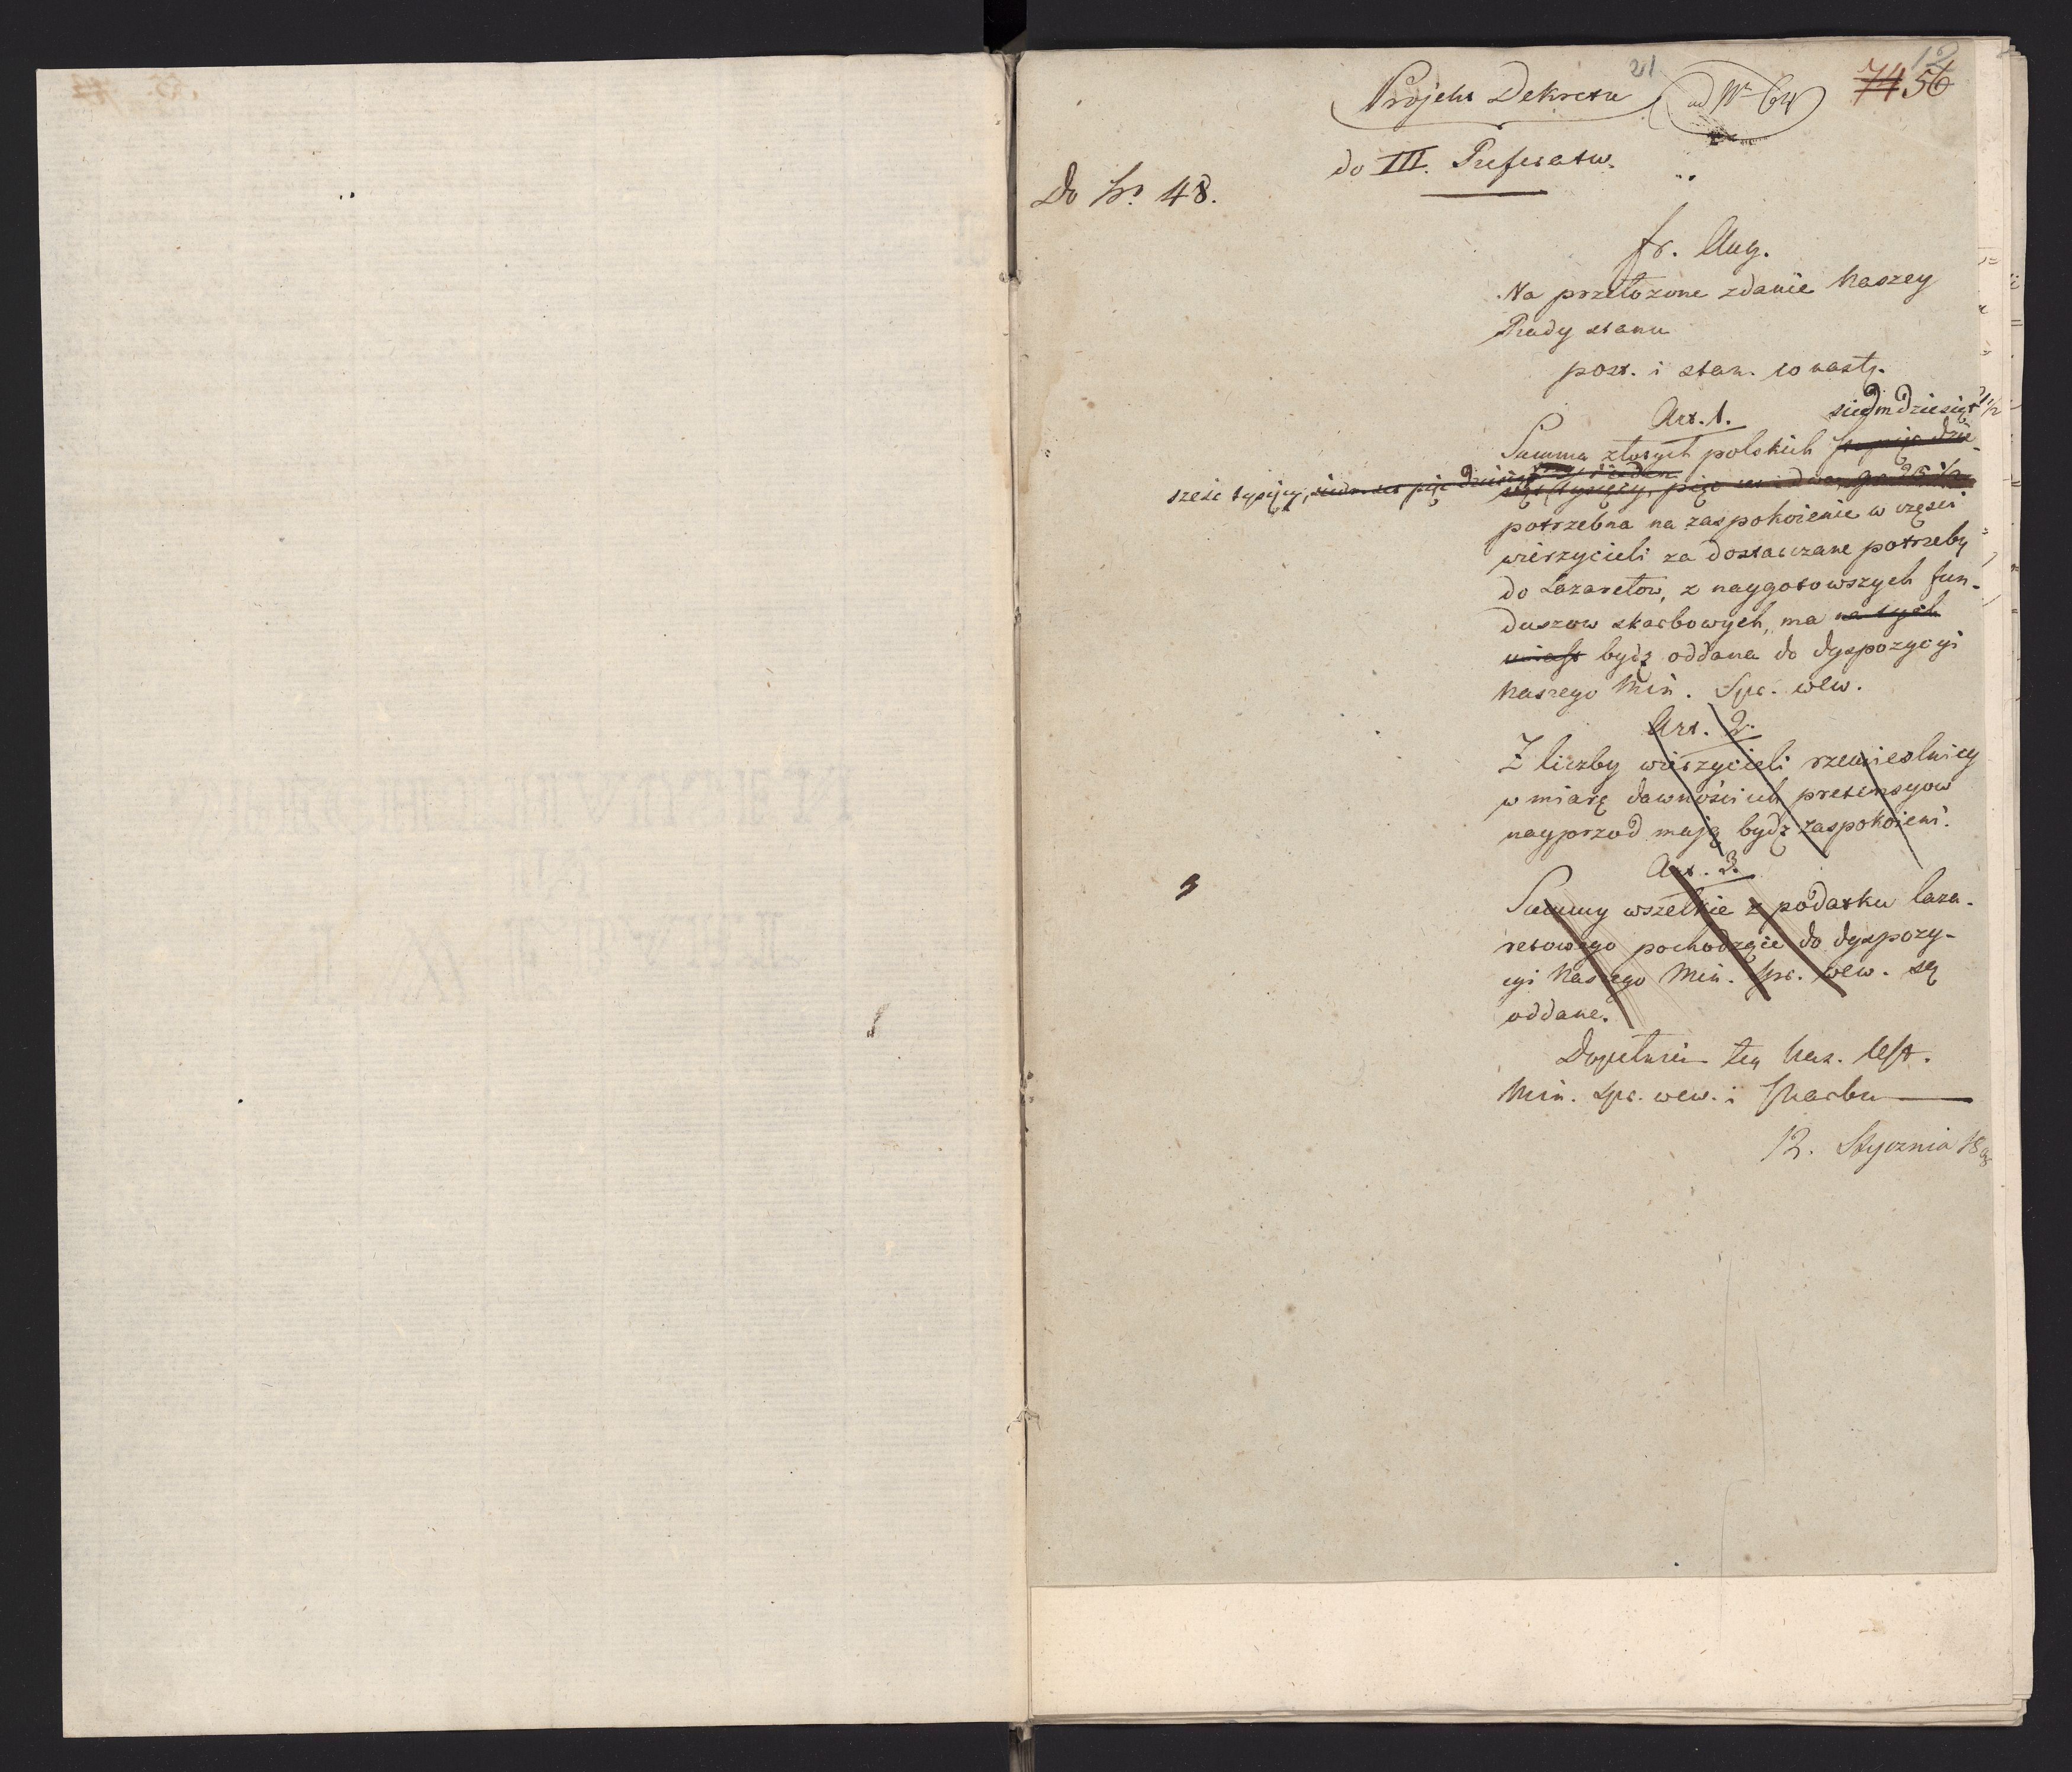 21
12
Projekt Dekretu ad Nr 64 74 56
do III. Referatu.
Do Nr. 48.
fr. Aug.
Na przełożone zdanie Naszey
Rady stanu
post. i stan. co nastę.
Art. 1. siedmdziesiąt
Summa złotych polskich
sześc tysięcy, siedmset pięcdziesiąt siąt tysięcy, pięc set dwa, gr. 25 1/2
potrzebna na zaspokoienie w części
wierzycieli za dostarczane potrzeby
do Lazaretow, z naygotowszych fun-
duszow skarbowych, ma natych
miast bydz oddana do dyspozycyi
Naszego Min. Spr. wew.
Art. 2.
Z liczby wierzycieli rzemieslnicy
w miarę dawności ich pretensyow
nayprzod mają bydz zaspokoieni.
Art. 3.
Summy wszelkie z podatku laza-
retowego pochodzące do dyspozy-
cyi Naszego Min. Spr. wew. są
oddane.
Dopełnienie teg Nas. Ust.
Min. Spr. wew. i Skarbu
12. Stycznia